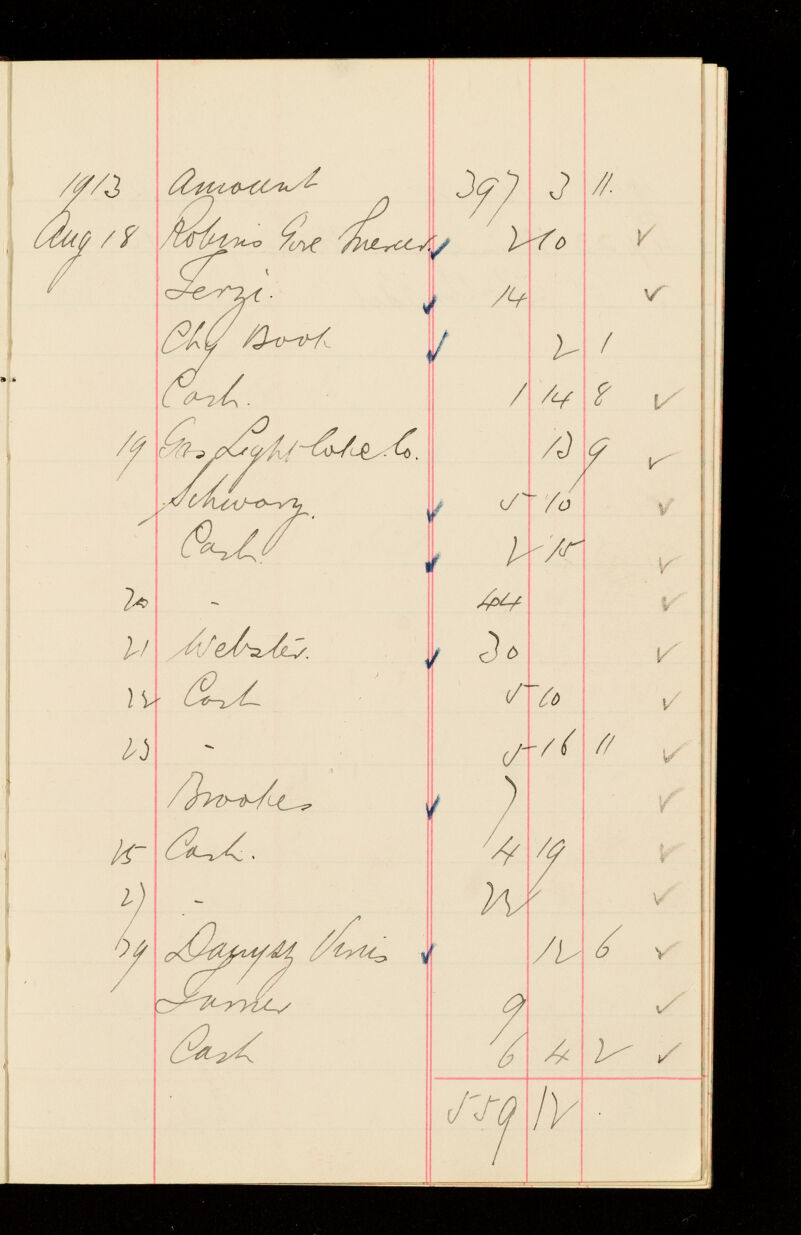 1913 Amount 397 3 11.
Aug 18 Robins Gore Mercer ✓ 2 10 ✓
Terzi. ✓ 14 ✓
Chq Book ✓ 2 1
Cash. 1 14 8 ✓
19 Gas Light Coke Co. 13 9 ✓
Schwarz. ✓ 5 10 ✓
Cash. ✓ 2 15 ✓
20 - 44 ✓
21 Webster. ✓ 30 ✓
22 Cash 5 10 ✓
23 - 5 16 11 ✓
Brookes ✓ 7 ✓
25 Cash. 4 19 ✓
27 - 22 ✓
29 Danysz Virus ✓ 12 6 ✓
Turner 9 ✓
Cash 6 4 2 ✓
559 12 .